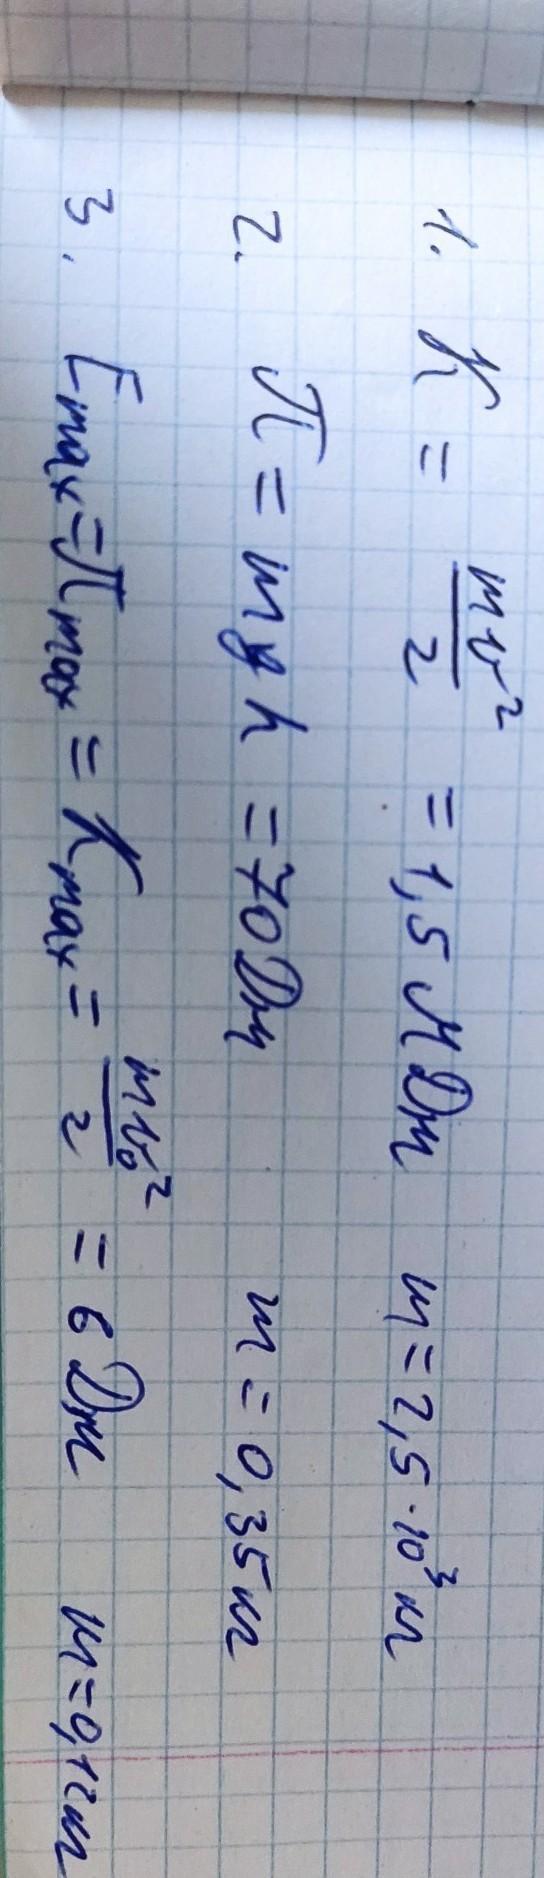 1. K = mv²/2 = 1,5 МДж m = 2,5·10³ м
2. П = mgh = 70 Дж m = 0,35 м
3. Emax = Пmax = Kmax = mv₀²/2 = 6 Дж m = 0,12 м